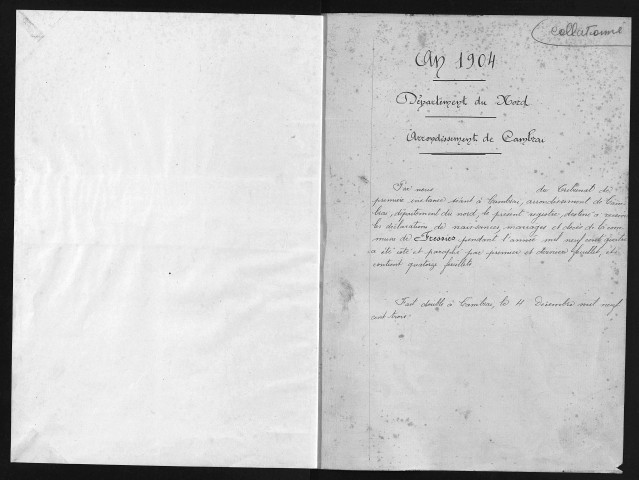 collationné
An 1904
Département du Nord
Arrondissement de Cambrai
Par nous du Tribunal de
première instance séant à Cambrai, arrondissement de Cam-
brai, département du nord, le présent registre, destiné à recevoir
les déclarations de naissances, mariages et décès de la com-
mune de Fressies pendant l'année mil neuf cent quatre
a été coté et paraphé par premier et dernier feuillet,
contenant quatorze feuillets
Fait double à Cambrai, le 4 Décembre mil neuf
cent trois.